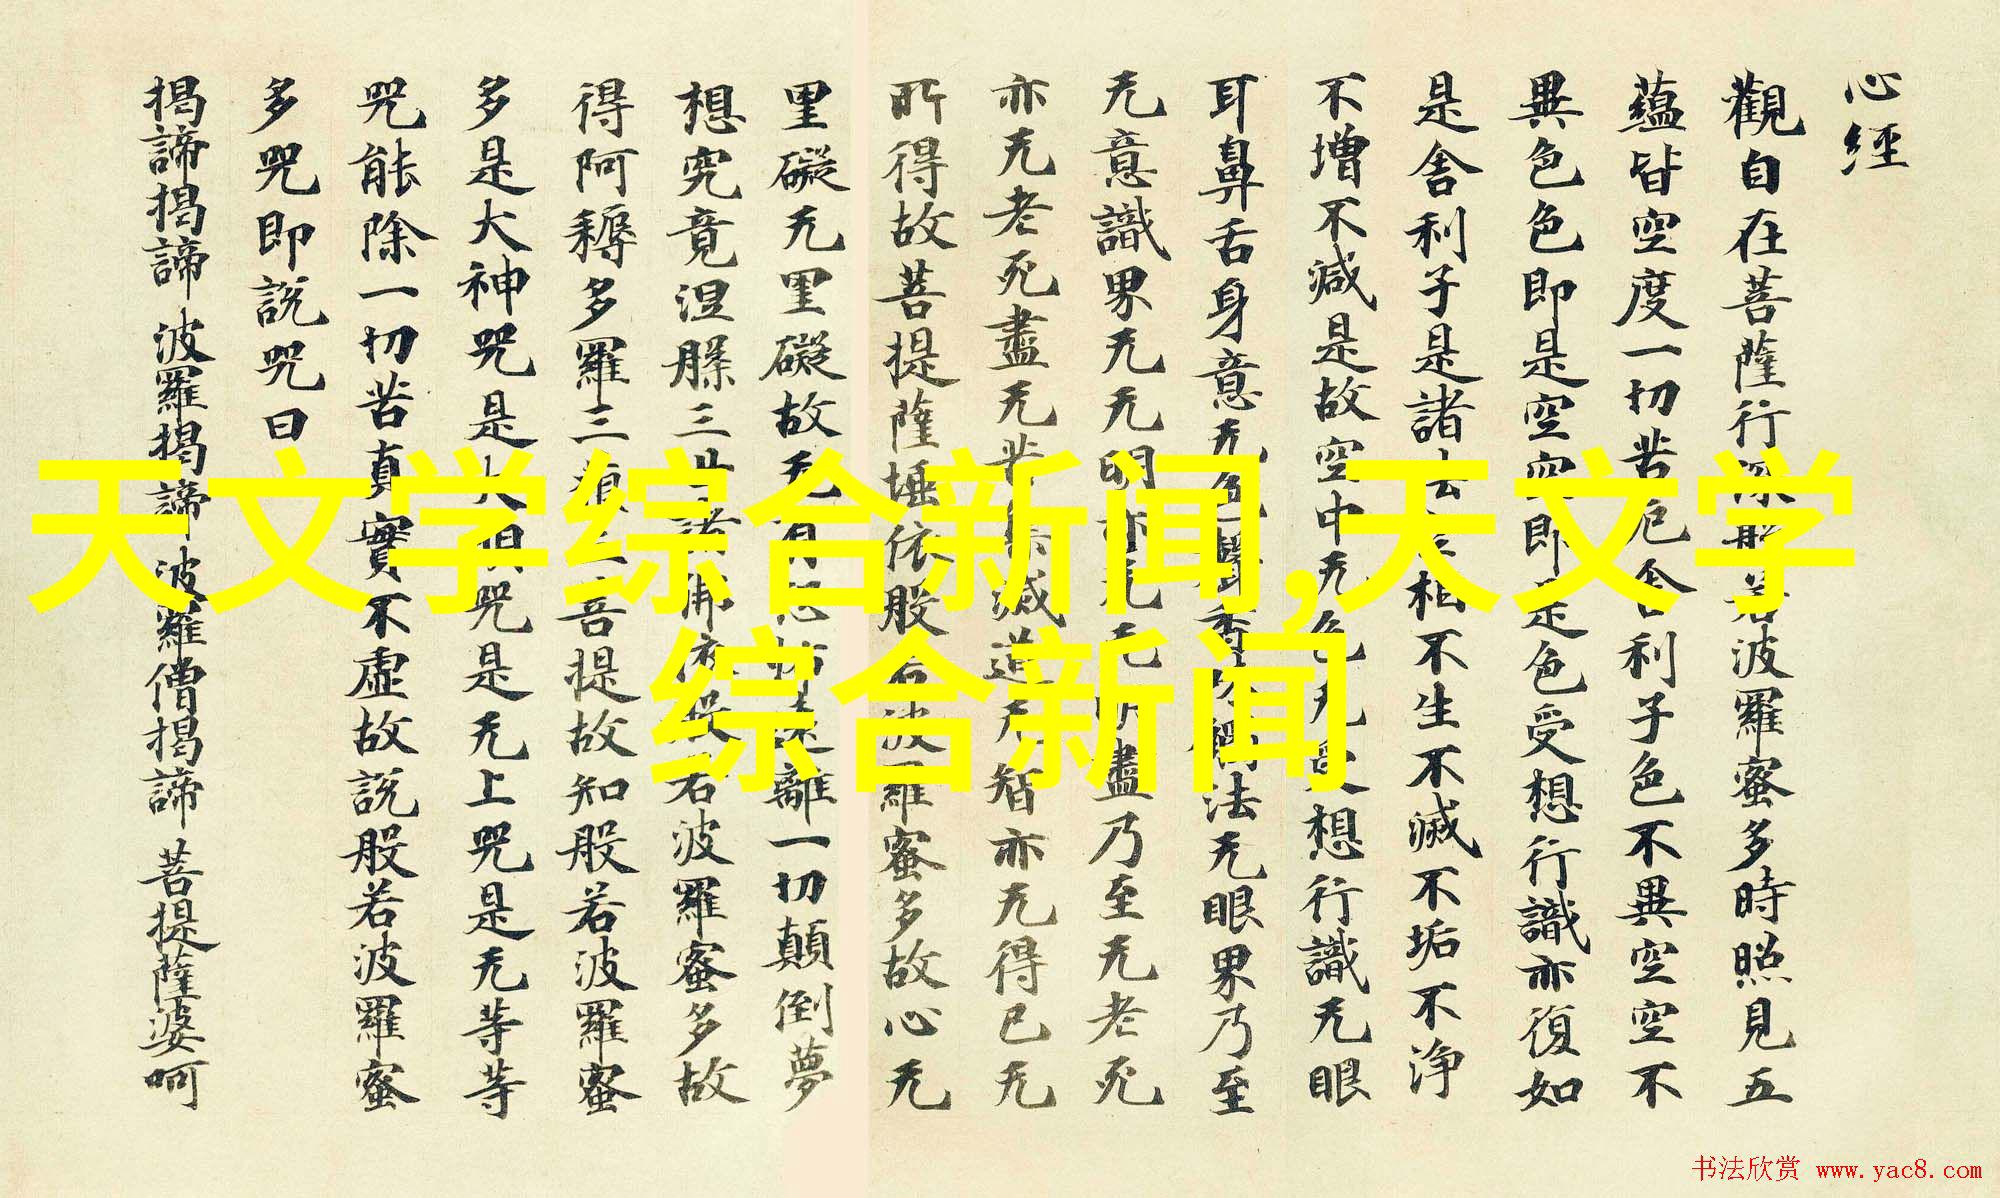 心經
觀自在菩薩行深般若波羅蜜多時照見五
蘊皆空度一切苦厄舍利子色不異空空不
異色色即是空空即是色受想行識亦復如
是舍利子是諸法空相不生不滅不垢不浄
不增不減是故空中无色无受想行識无眼
耳鼻舌身意无色聲香味觸法无眼界乃至
无意識界无无明亦无无明盡乃至无老死
亦无老死盡无苦集滅道无智亦无得已无
所得故菩提薩埵依般若波羅蜜多故心无
罣礙无罣礙故无有恐怖遠離一切顛倒夢
想究竟涅槃三世諸佛依般若波羅蜜多故
得阿耨多羅三藐三菩提故知般若波羅蜜
多是大神咒是大明咒是无上咒是无等等
咒能除一切苦真實不虛故說般若波羅蜜
多咒即說咒曰
揭諦揭諦 波羅揭諦 波羅僧揭諦 菩提薩婆呵
天文学综合新闻,天文学
综合新闻
书法欣赏 www.yac8.com